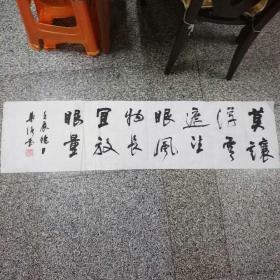 莫讓
浮雲
遮望
眼風
物長
宜放
眼量
壬辰